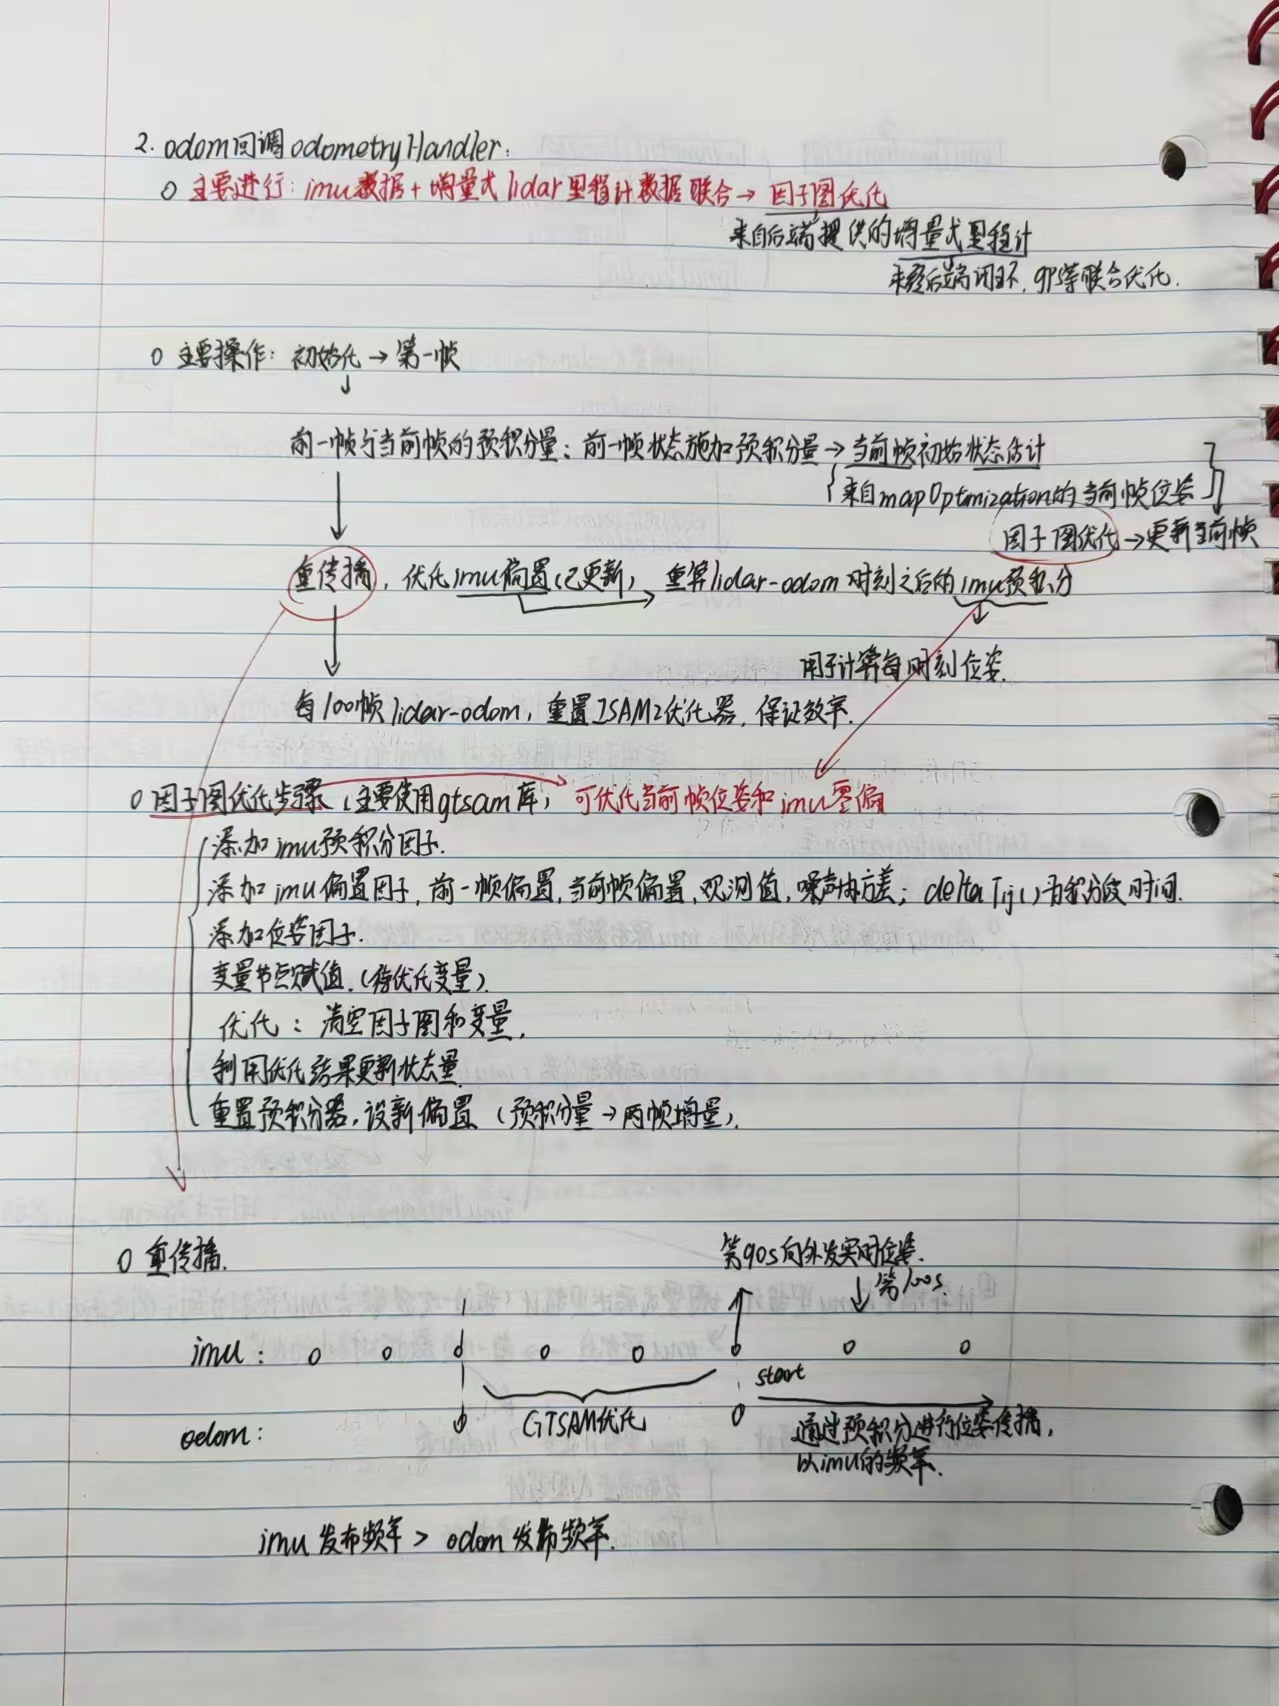 2. odom回调odometryHandler:
○ 主要进行: imu数据+增量式lidar里程计数据联合→因子图优化
来自后端提供的增量式里程计
未经后端闭环, gps等联合优化.
○ 主要操作: 初始化→第一帧
前一帧与当前帧的预积分量: 前一帧状态施加预积分量→当前帧初始状态估计
来自mapOptimization的当前帧位姿
因子图优化→更新当前帧
重传播, 优化imu偏置(已更新) 重算lidar-odom时刻之后的imu预积分
用于计算每时刻位姿.
每100帧lidar-odom, 重置ISAM2优化器, 保证效率.
○ 因子图优化步骤 (主要使用gtsam库) 可优化当前帧位姿和imu零偏
添加imu预积分因子.
添加imu偏置因子, 前一帧偏置, 当前帧偏置, 观测值, 噪声协方差; deltaTij()为积分段时间.
添加位姿因子.
变量节点赋值. (待优化变量).
优化: 清空因子图和变量,
利用优化结果更新状态量
重置预积分器, 设新偏置 (预积分量→两帧增量).
○ 重传播.
第90s向外发实时位姿.
第100s.
imu:
start
odom: GTSAM优化
通过预积分进行位姿传播,
以imu的频率.
imu发布频率 > odom发布频率.